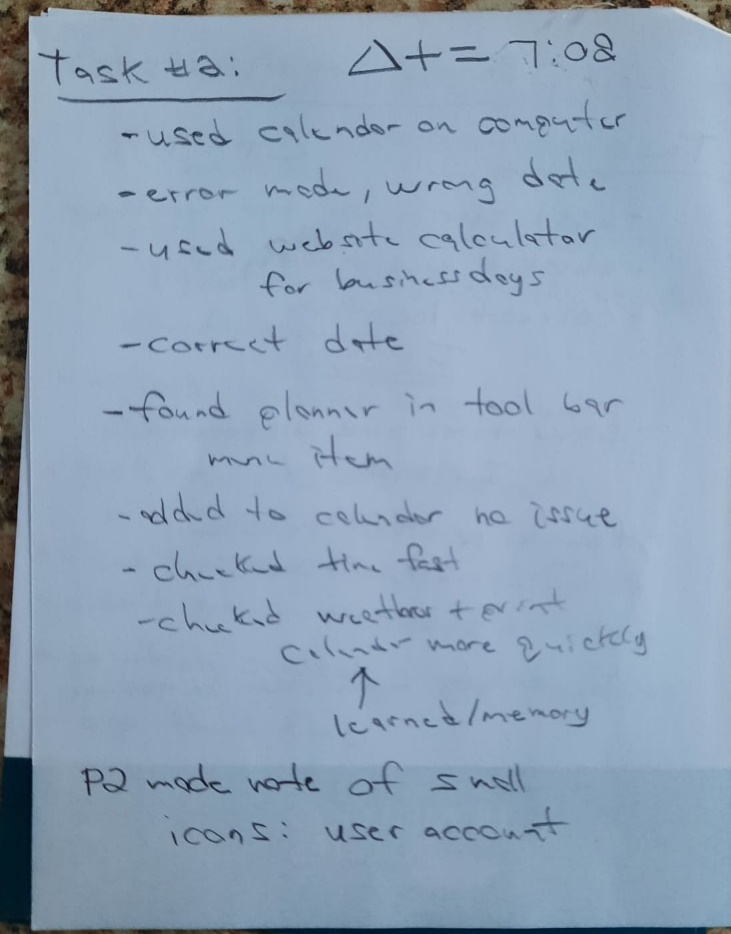 Task #2: Δt = 7:08
- used calendar on computer
- error made, wrong date
- used website calculator
for business days
- correct date
- found planner in tool bar
menu item
- added to calendar no issue
- checked time fast
- checked weather + print
calendar more quickly
↑
learned/memory
P2 made note of small
icons: user account